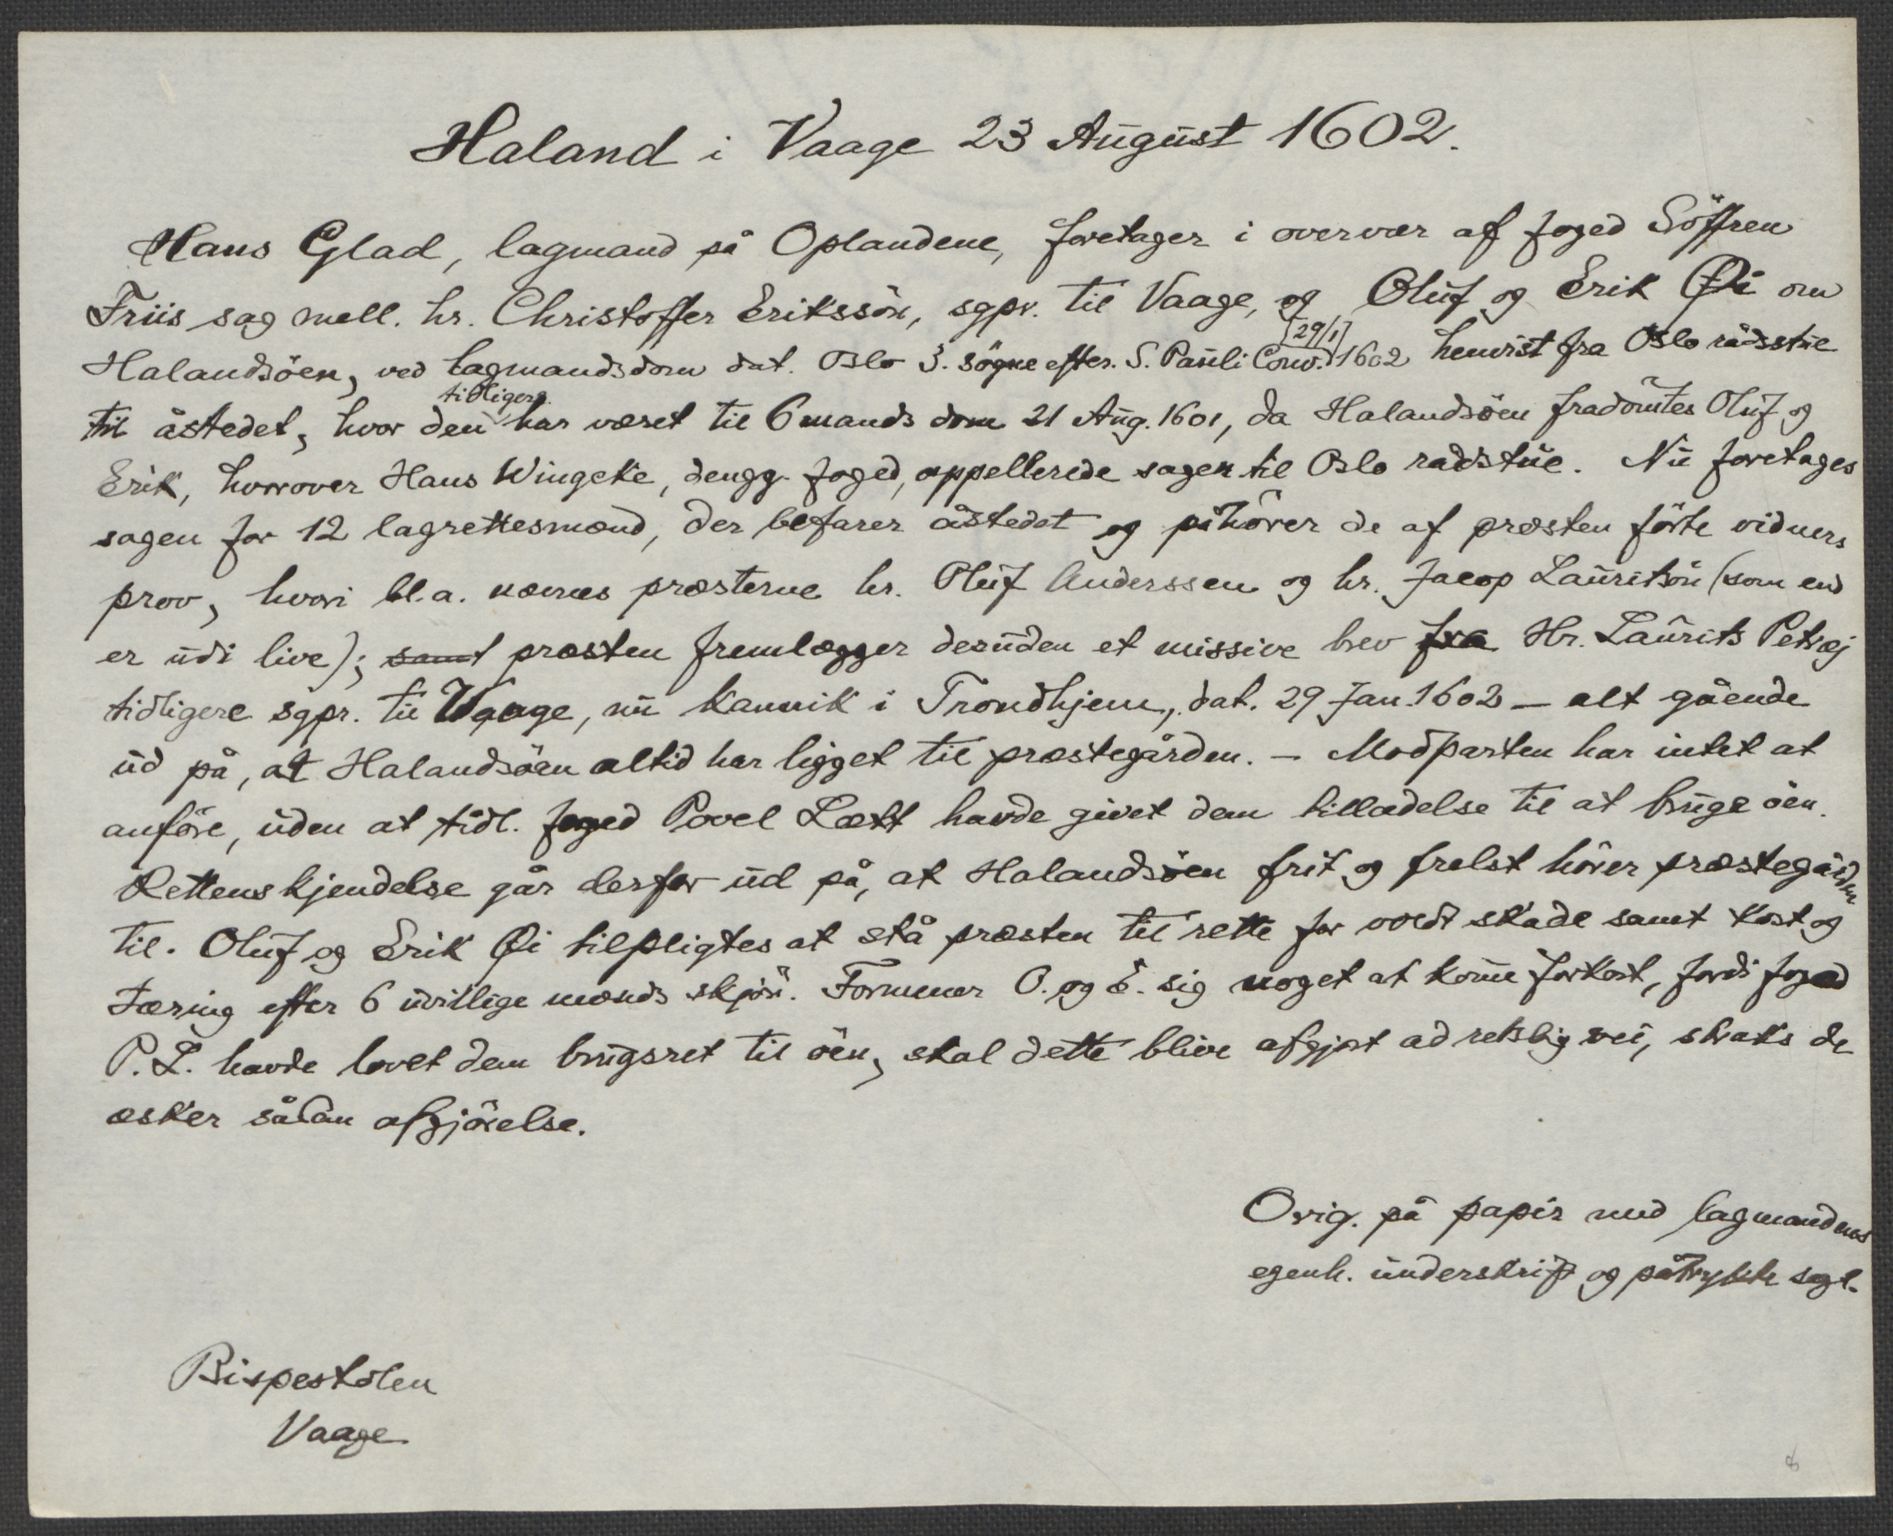 Haland i Vaage 23 August 1602.
Hans Glad, lagmand på Oplandene, foretager i overvær af foged Söffren
Friis sag mell. hr. Christoffer Erikssön, sgpr. til Vaage, og Oluf og Erik Øi om
[29/1]
Halandsöen, ved lagmandsdom dat. Oslo 3. søgne efter. S. Pauli Conv. 1602 henvist fra Oslo rådstue
tidligere
til åstedet, hvor den har været til 6 mands dom 21 Aug. 1601, da Halandsöen fradömtes Oluf og
Erik, hvorover Hans Wingcke, dengg. foged, appellerede sagen til Oslo rådstue. Nu foretages
sagen for 12 lagrettesmænd, der befarer åstedet og påhörer de af præsten förte vidners
prov, hvori bl.a. nævnes præsterne hr. Oluf Anderssen og hr. Jacop Lauritsön (som end
er udi live); samt præsten fremlægger desuden et missive brev fra Hr. Laurits Petrej
tidligere sgpr. til Vaage, nu kannik i Trondhjem, dat. 29 Jan. 1602 — alt gående
ud på, at Halandsöen altid har ligget til præstegården. — Modparten har intet at
anföre, uden at tidl. foged Povel Lætt havde givet dem tilladelse til at bruge öen.
Rettens kjendelse går derfor ud på, at Halandsöen frit og frelst hörer præstegården
til. Oluf og Erik Øi tilpligtes at stå præsten til rette for voldt skade samt kost og
tæring efter 6 uvillige mænds skjön. Formener O. og E. sig noget at kome forkort, fordi foged
P. L. havde lovet dem brugsret til öen, skal dette blive afgjort ad retslig vei, straks de
æsker sådan afgjörelse.
Orig. på papir med lagmandens
egenh. underskrift og påtrykte segl.
Bispestolen
Vaage